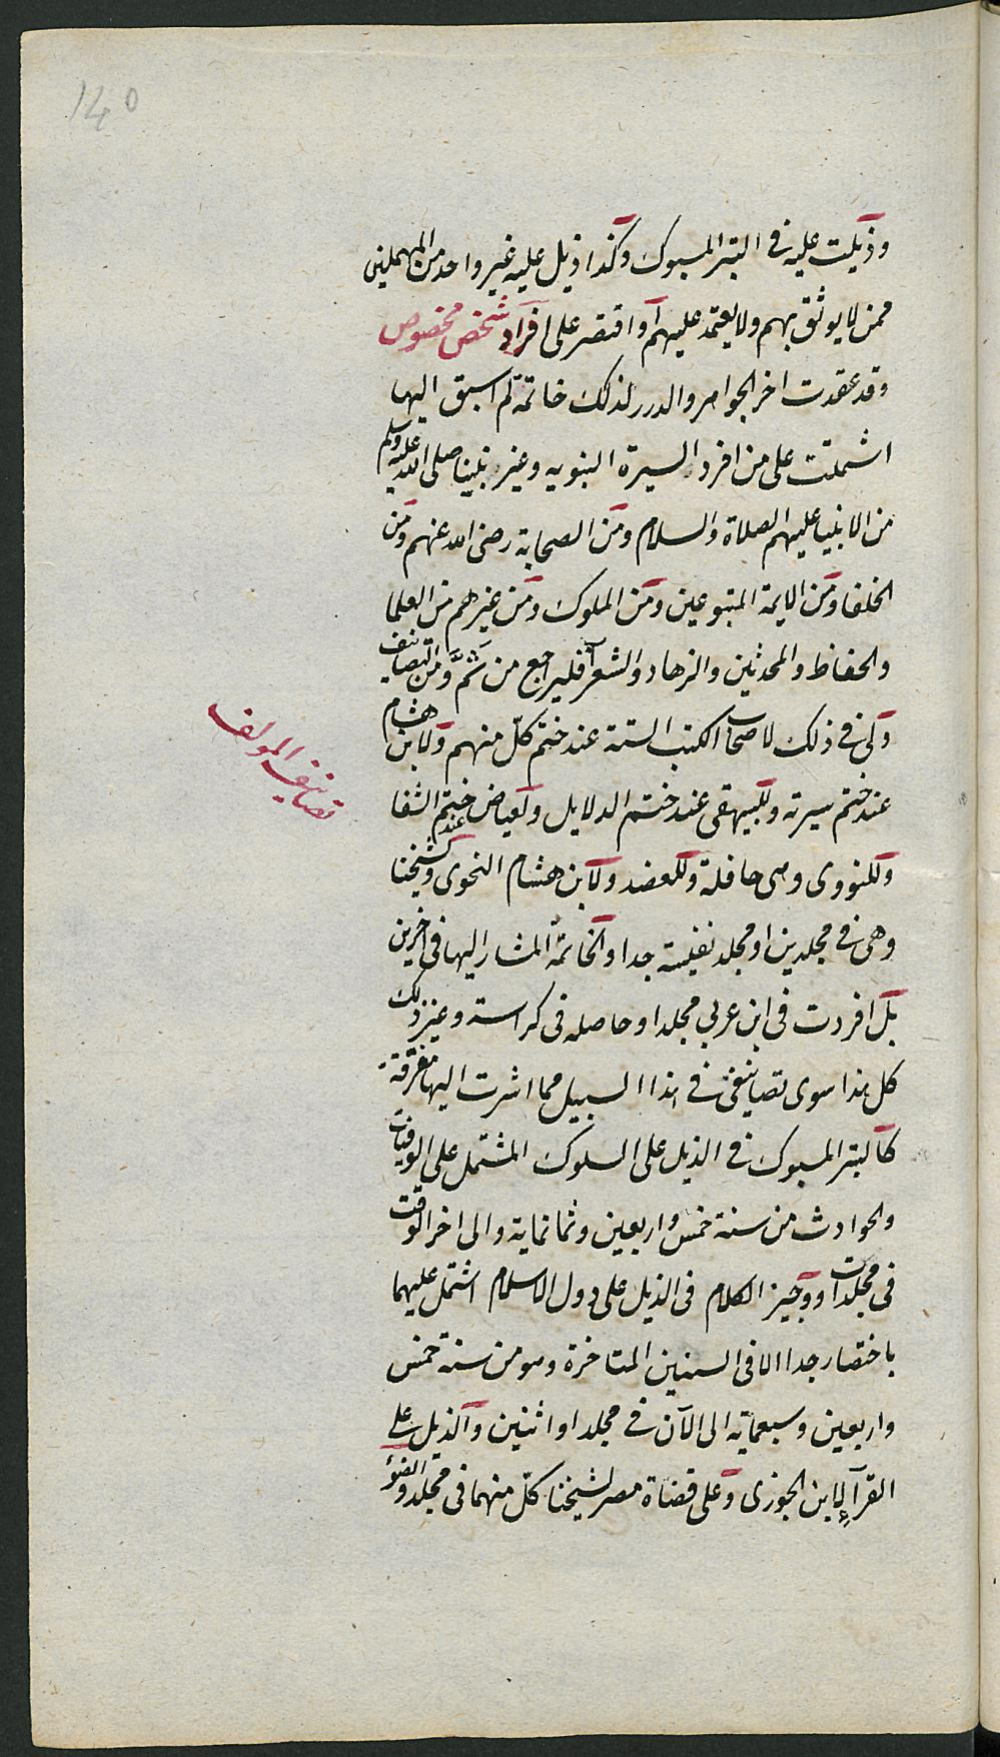 140
وذيلت عليه في التبر المسبوك وكذا ذيل عليه غير واحد من المهملين
ممن لا يوثق بهم ولا يعتمد عليهم او اقتصر على افراد شخص مخصوص
وقد عقدت اخر الجواهر والدرر لذلك خاتمة لم اسبق اليها
اشتملت على من افرد السيرة النبويه وغير نبينا صلى الله عليه وسلم
من الانبيا عليهم الصلاة والسلام ومن الصحابة رضى الله عنهم ومن
الخلفا ومن الايمة المتبوعين ومن الملوك ومن غيرهم من العلما
والحفاظ والمحدثين والزهاد والشعرآ فليراجع من ثَمَّ ومن التصانيف
ولى في ذلك لاصحاب الكتب الستة عند ختم كلّ منهم ولابن هشام
تصانيف المولف
عند ختم سيرته وللبيهقى عند ختم الدلايل ولعياض عند ختم الشفا
وللنووى وهى حافلة وللعضد ولابن هشام النحوى ولشيخنا
وهى في مجلدين او مجلد نفيسة جدا والخاتمة المشار اليها في اخرين
بل افردت في ابن عربي مجلدا وحاصله في كراسة وغير ذلك
كل هذا سوى تصانيفى في هذا السبيل مما اشرت اليها مفرقة
كالتبر المسبوك في الذيل على السلوك المشتمل على الوفيات
والحوادث من سنة خمس واربعين وثمانماية والى اخر الوقت
في مجلدات ووجيز الكلام في الذيل على دول الاسلام اشتمل عليهما
باختصار جدا الا في السنين المتاخرة وهو من سنة خمس
واربعين وسبعماية الى الآن في مجلد او اثنين والذيل على
القرآ لابن الجوزى وعلى قضاة مصر لشيخنا كلّ منهما في مجلد والضوء